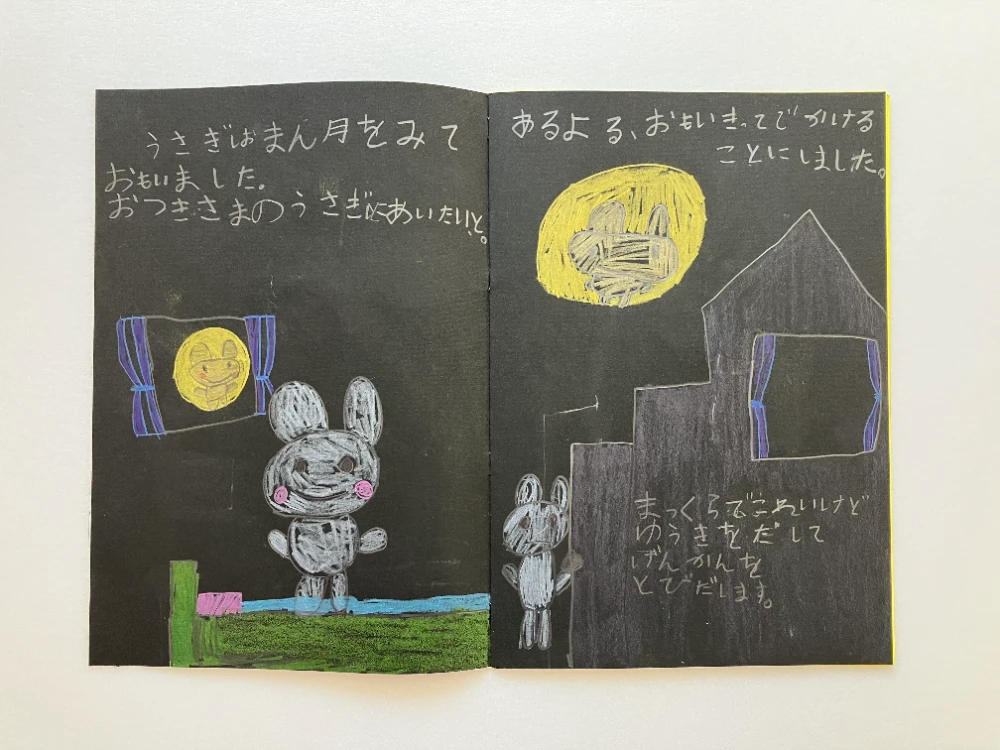 うさぎはまん月をみて
おもいました。
おつきさまのうさぎにあいたい、と。
あるよる、おもいきってでかける
ことにしました。
まっくらでこわいけど
ゆうきをだして
げんかんを
とびだします。